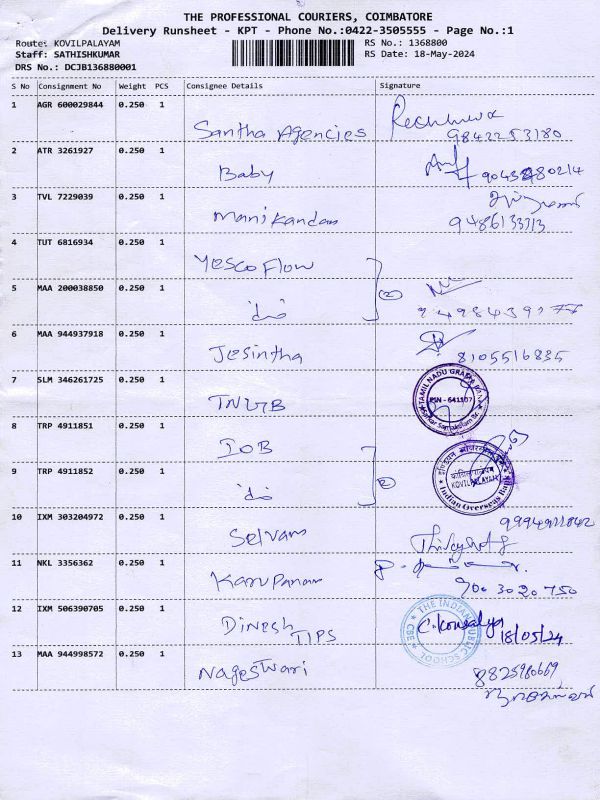 THE PROFESSIONAL COURIERS, COIMBATORE
Delivery Runsheet - KPT - Phone No.:0422-3505555 - Page No.:1
Route: KOVILPALAYAM
RS No.: 1368800
Staff: SATHISHKUMAR
RS Date: 18-May-2024
DRS No.: DCJB136880001
S No Consignment No Weight PCS Consignee Details Signature
1 AGR 600029844 0.250 1
Santha Agencies
9842253180
2 ATR 3261927 0.250 1
Baby
3 TVL 7229039 0.250 1
Manikandan
9486133313
4 TUT 6816934 0.250 1
Yesco Flow
5 MAA 200038850 0.250 1
(2)
6 MAA 944937918 0.250 1
Jesintha 8105516835
7 SLM 346261725 0.250 1
TNGB
TAMIL NADU GRAMA BANK
PIN - 641107
8 TRP 4911851 0.250 1
IOB
9 TRP 4911852 0.250 1
(2)
KOVILPALAYAM
Indian Overseas Bank
10 IXM 303204972 0.250 1
Selvam
11 NKL 3356362 0.250 1
Karupanan
12 IXM 506390705 0.250 1
Dinesh
TIPS
THE INDIAN PUBLIC SCHOOL
CBE
C. Kowsalya
18/05/24
13 MAA 944998572 0.250 1
Nageswari